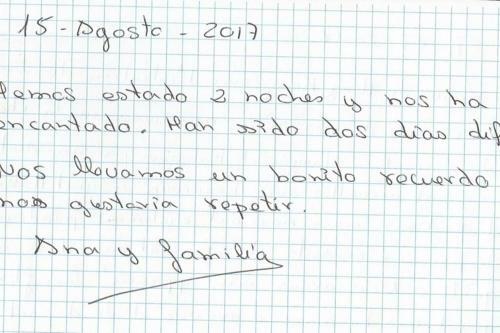 15-Agosto-2017
Hemos estado 2 noches y nos ha
encantado. Han sido dos dias dif
Nos llevamos un bonito recuerdo
nos gustaria repetir.
Ana y familia